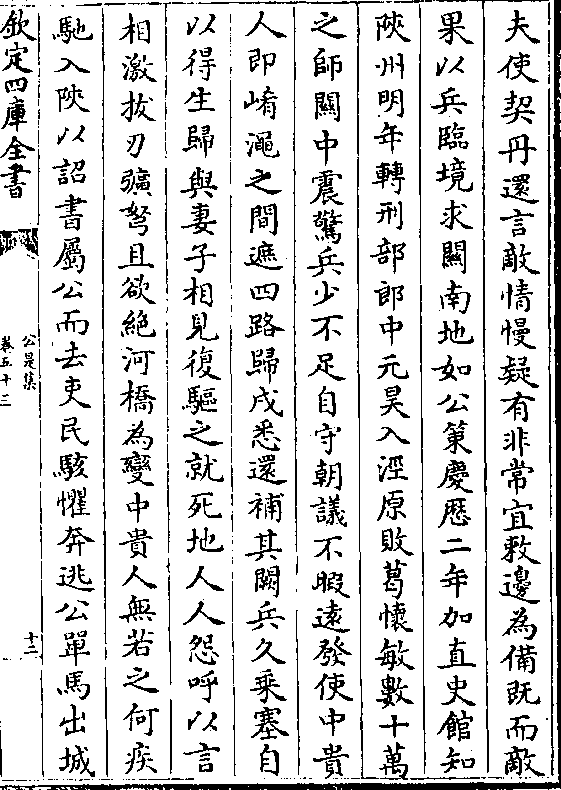 夫使契丹還言敵情慢疑有非常宜敕邊為備既而敵
果以兵臨境求關南地如公策慶厯二年加直史館知
陜州明年轉刑部郎中元昊入涇原敗葛懷敏數十萬
之師關中震驚兵少不足自守朝議不暇遠發使中貴
人即崤澠之間遮四路歸戍悉還補其闕兵久乘塞自
以得生歸與妻子相見復驅之就死地人人怨呼以言
相激拔刃彍弩且欲絶河橋為變中貴人無若之何疾
馳入陜以詔書屬公而去吏民駭懼奔逃公單馬出城
欽定四庫全書
公是集
卷五十三
十二